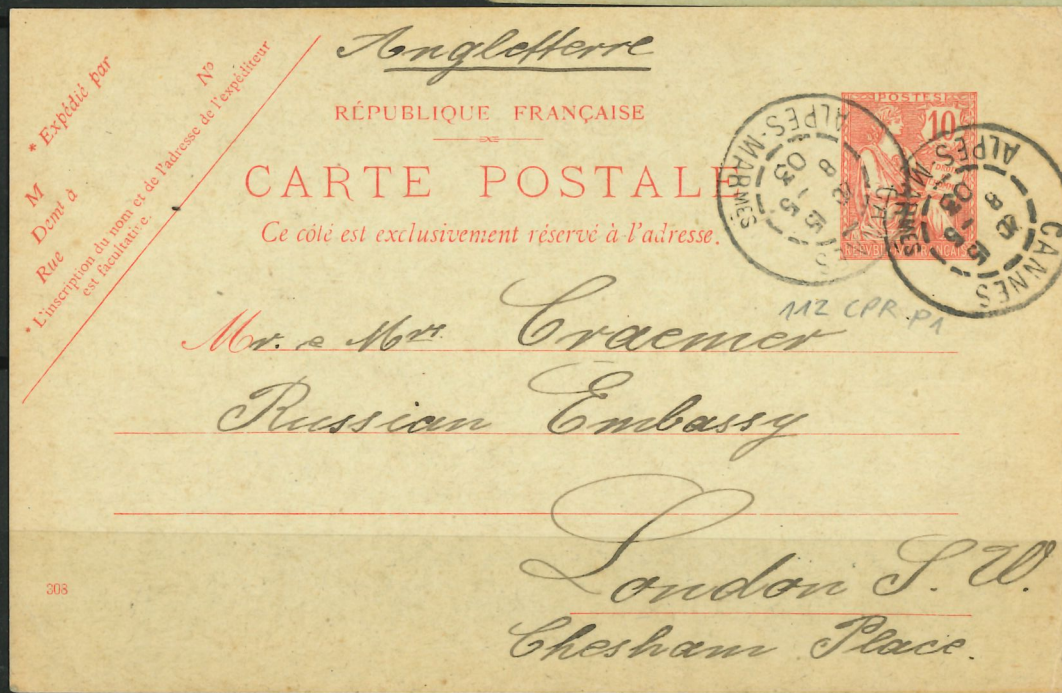 Angletterre
* Expédié par
N°
M
Demt à
Rue
* L'inscription du nom et de l'adresse de l'expéditeur
est facultative.
RÉPUBLIQUE FRANÇAISE
CARTE POSTALE
Ce côté est exclusivement réservé à l'adresse.
POSTES
10
ALPES-MARMES
8
15 1
03
CANNES
ALPES MARMES
8
15 1
03
112 CPR P1
Mr. e Mrs Craemer
Russian Embassy
London S. W.
Chesham Place.
308